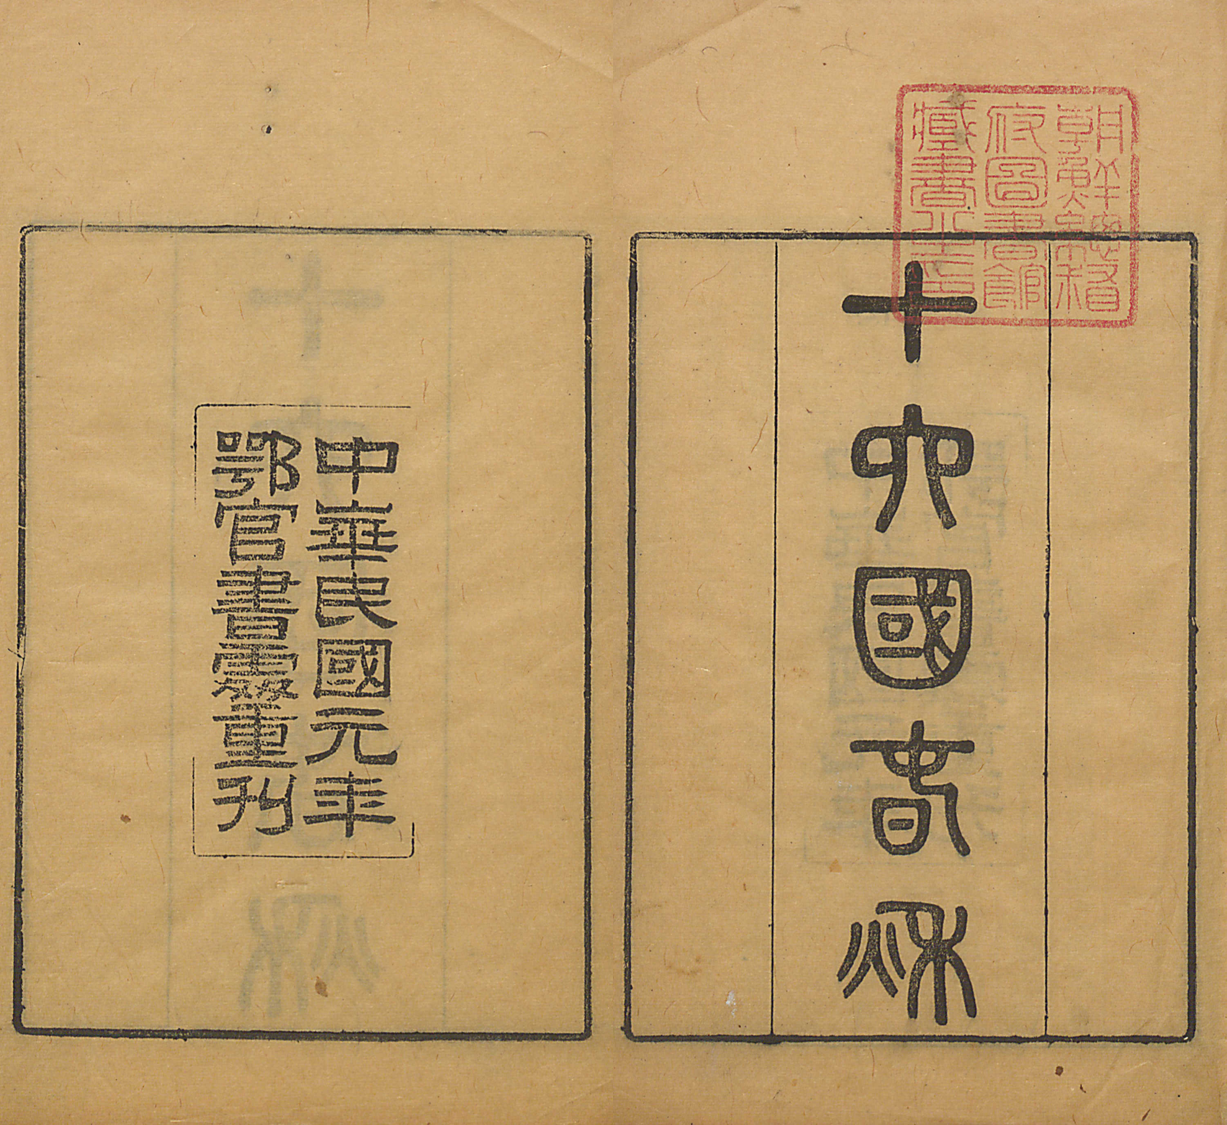 十六國春秋
朝鮮總督
府圖書館
藏書之印
中華民國元年
鄂官書處重刊